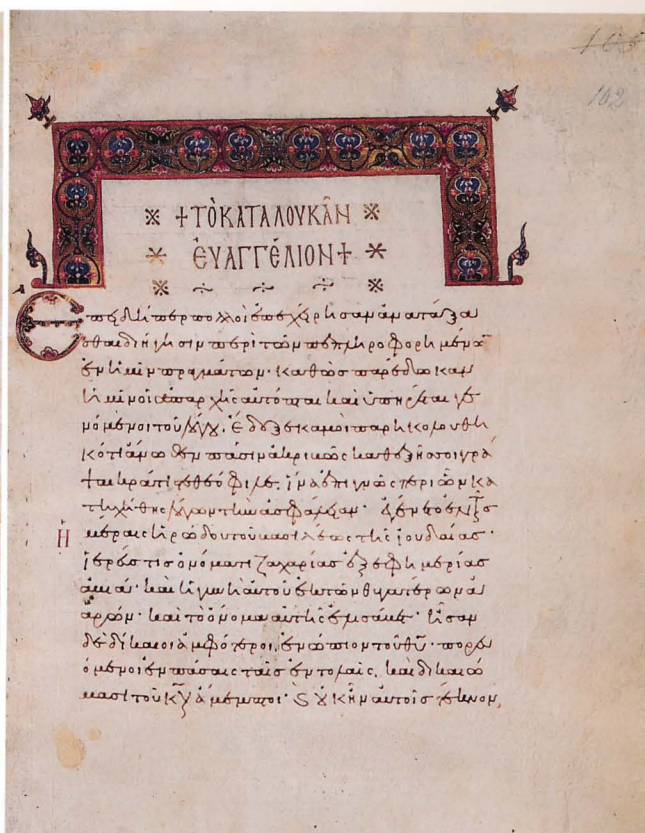 102
+ΤὸΚΑΤΑΛΟΥΚᾶΝ
ἐΥΑΓΓέΛΙΟΝ+
Ἐπειδήπερ πολλοὶ ἐπεχείρησαν ἀνατάξα
σθαι διήγησιν περὶ τῶν πεπληροφορημένω
ἐν ἡμῖν πραγμάτων· καθὼς παρέδωκαν
ἡμῖν οἱ ἀπαρχῆς αὐτόπται καὶ ὑπηρέται γε
νόμενοι τοῦ λόγου· ἔδοξε καμοὶ παρηκολουθη
κότι ἄνωθεν πᾶσιν ἀκριβῶς καθεξῆς σοι γρά
ψαι κράτιστε θεόφιλε, ἵνα ἐπιγνῶς περὶ ὧν κα
τηχήθης λόγων τὴν ἀσφάλειαν· ἐγένετο ἐν ταῖς
ἡμέραις ἡρώδου τοῦ βασιλέως τῆς ἰουδαίας·
ἱερεύς τις ὀνόματι ζαχαρίας ἐξ ἐφημερίας
ἀβιά· καὶ ἡ γυνὴ αὐτοῦ ἐκ τῶν θυγατέρων ἀ
αρών· καὶ τὸ ὄνομα αὐτῆς ἐλισάβετ· ἦσαν
δὲ δίκαιοι ἀμφότεροι, ἐνώπιον τοῦ θυ· πορευ
όμενοι ἐν πάσαις ταῖς ἐντολαῖς, καὶ δικαιώ
μασι τοῦ κυ ἄμεμπτοι· Ȣκ ἦν αὐτοῖς τέκνον,